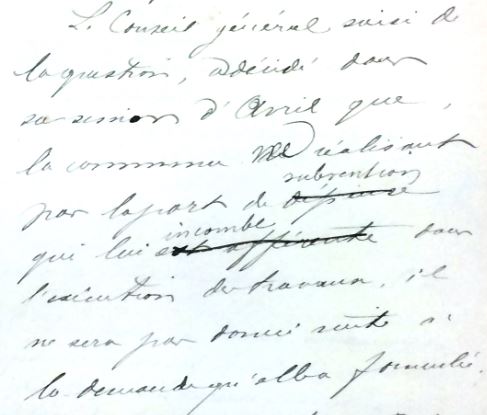 Le Conseil général saisi de
la question, a décidé dans
sa session d'Avril que,
la commune ne réalisant
subvention
pas la part de dépense
incombe
qui lui est afférente dans
l'exécution des travaux, il
ne sera pas donné suite à
la demande qu'elle a formulée.